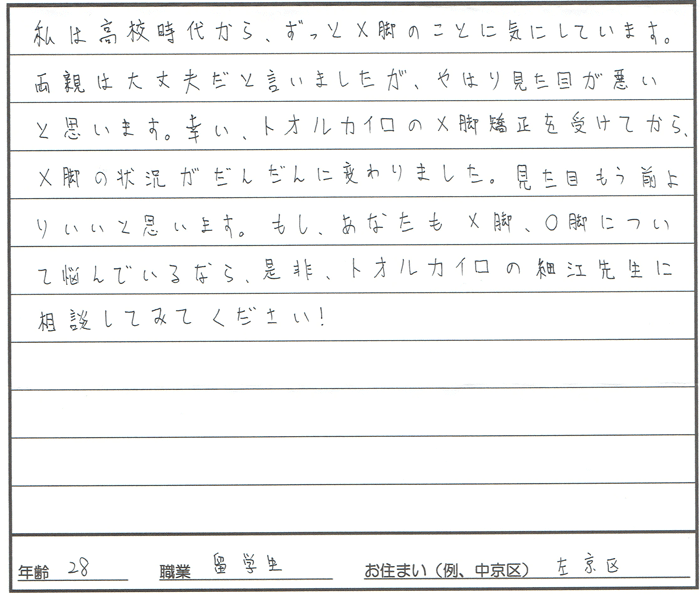 私は高校時代から、ずっとX脚のことに気にしています。
両親は大丈夫だと言いましたが、やはり見た目が悪い
と思います。幸い、トオルカイロのX脚矯正を受けてから、
X脚の状況がだんだんに変わりました。見た目もう前よ
りいいと思います。もし、あなたもX脚、O脚につい
て悩んでいるなら、是非、トオルカイロの細江先生に
相談してみてください!
年齢 28 職業 留学生 お住まい(例、中京区) 左京区